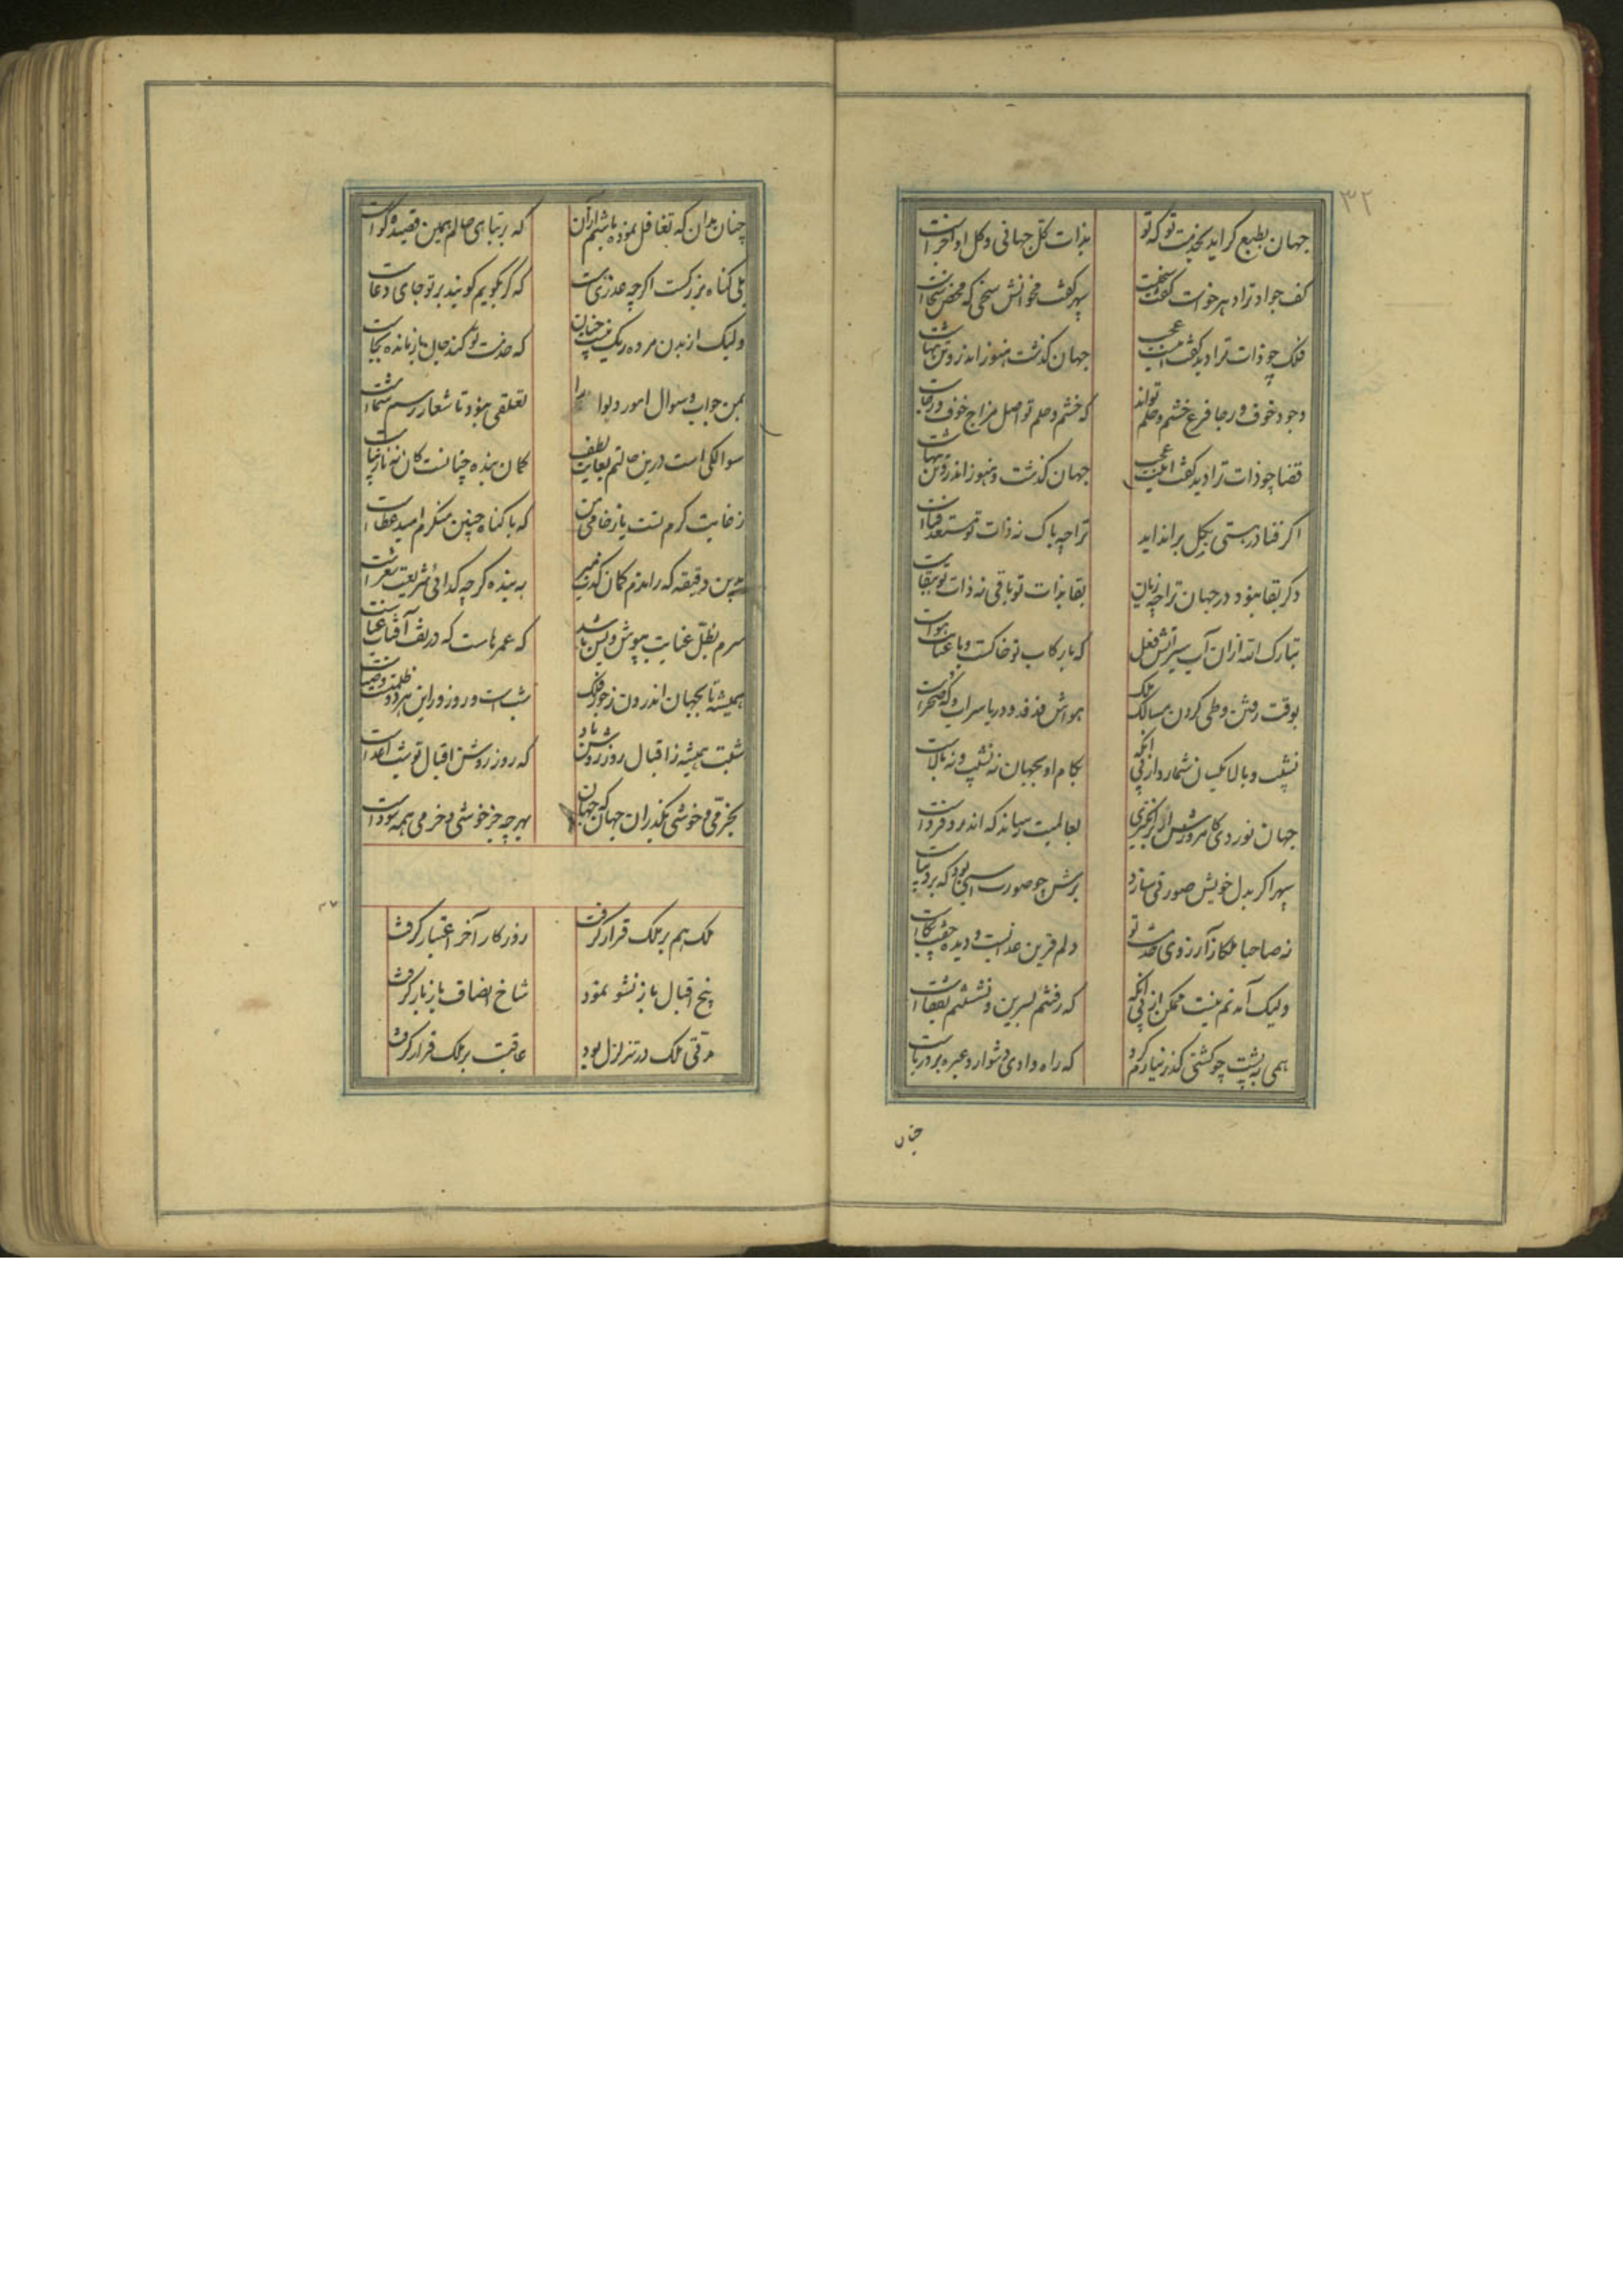 ۳۲
جهان بطبع کراید بخدمت تو که تو بذات کل جهانی و کل او اجزاست
کف جواد ترا دهر خواست گفت سخیست سپهر گفت مخوانش سخی که محض سخاست
فلک چو ذات ترا دید گفت اینت عجب جهان گذشت هنوز اندرو تن تنهاست
وجود خوف و رجا فرع خشم و حلم تواند که خشم و حلم تو اصل مزاج خوف و رجاست
قضا چو ذات ترا دید گفت اینت عجب جهان گذشت و هنوز اندرو تن تنهاست
اگر فنا در هستی بگل براندايد ترا چه باک نه ذات تو مستعد فناست
وگر بقا نبود در جهان ترا چه زیان بقا بذات تو باقی نه ذات تو ببقاست
تبارک الله ازان آب سیر آتش فعل که با رکاب تو خاکست و با عنانت هواست
بوقت رفتن و طی کردن مسالک ملک هواش فدفد و دریا سراب و که صحراست
نشیب و بالا یکسان شمارد از پی آنکه بکام او بجهان نه نشیب و نه بالاست
جهان نوردی کامروزش ار برانگیزی بعالمیت رساند که اندرو فرداست
سپهر اگر بدل خویش صورتی سازد برش چو صورت اسپی بود که بر دیباست
نه صاحبا ملکا ز آرزوی خدمت تو دلم قرین عذابست و دیده جفت بکاست
ولیک آمدنم نیست ممکن از پی آنکه که رفتم بسرین و نشستنم بقفاست
همی به پشت چو کشتی گذر نیارم کرد که راه وادی دشوار و عبره بر دریاست
چنان
چنان بدان که تغافل نموده باشم ازآن که بر تباهی حالم همین قصیده گواست
بلی گناه بزرگست اگرچه عذری هست که گر بگویم گویند بر تو جای دعاست
ولیک از بدن مرده ریک نیست چنان که خدمت تو کند حال بازمانده کجاست
بمن جواب و سوال امور دیوان را تعلقی نبود تا شعار رسم شماست
سوالکی است درین حالتم بغایت لطف گمان بنده چنانست کان نه نازیباست
ز غایت کرم تست یا ز خامی من که با گناه چنین منکرم امید عطاست
بدین دقیقه که راندم گمان کدیه مبر به بنده گرچه گدائی شریعت شعراست
سرم بظل عنایت بپوش و بس باشد که عمرهاست که در تف آفتاب عناست
همیشه تا بجهان اندرون ز جود فلک شب است و روز و در این هر دو ظلمت و ضیاست
شبت همیشه ز اقبال روز روشن باد که روز روشن اقبال تو شب اعداست
بخرمی و خوشی بگذران جهان که جهان بهر چه جز خوشی و خرمی همه سوداست
ملک هم بر ملک قرار گرفت روزگار آخر اعتبار گرفت
بیخ اقبال باز نشو نمود شاخ انصاف باز بار گرفت
مدتی ملک در تزلزل بود عاقبت بر ملک قرار گرفت